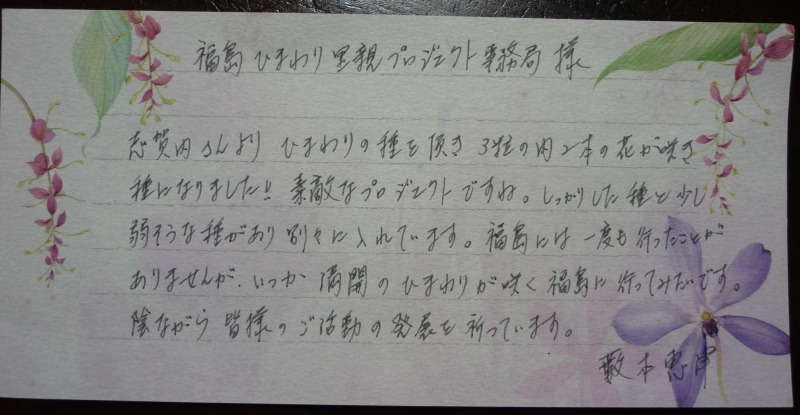 福島ひまわり里親プロジェクト事務局 様
志賀内さんより ひまわりの種を頂き 3粒の内2本の花が咲き
種になりました!! 素敵なプロジェクトですね。しっかりした種と少し
弱そうな種があり別々に入れています。福島には一度も行ったことが
ありませんが、いつか 満開のひまわりが咲く福島に行ってみたいです。
陰ながら皆様のご活動の発展を祈っています。
藪本恵